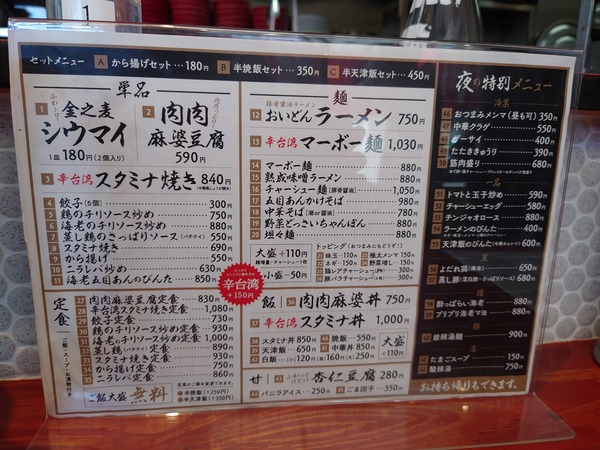 セットメニュー A から揚げセット…180円 B 半焼飯セット…350円 C 半天津飯セット…450円
単品
1 金之麦シウマイ
1皿180円(2個入り)
2 肉肉麻婆豆腐
590円
3 辛台湾スタミナ焼き 840円
4 餃子(5個) 300円
5 鶏のチリソース炒め 750円
6 海老のチリソース炒め
7 蒸し鶏のさっぱりソース
8 スタミナ焼き
9 から揚げ
10 ニラレバ炒め 630円
11 海老五目あんのびんた 850円
辛台湾
+150円
定食
ご飯・スープ・お漬物付き
27 肉肉麻婆豆腐定食 830円
28 辛台湾スタミナ焼き定食
29 餃子定食 730円
30 鶏のチリソース炒め定食 930円
31 海老のチリソース炒め定食 1,000円
32 蒸し鶏定食
33 スタミナ焼き定食 930円
34 から揚げ定食 750円
35 ニラレバ炒め定食 860円
ご飯大盛 無料
半焼飯(+250円)
半天津飯(+350円)
麺
豚骨醤油ラーメン
12 おいどんラーメン 750円
13 辛台湾マーボー麺 1,030円
14 マーボー麺 880円
15 熟成味噌ラーメン 880円
16 チャーシュー麺(豚骨醤油) 1,050円
17 五目あんかけそば 980円
18 中華そば 780円
19 野菜どっさいちゃんぽん 880円
20 坦々麺 880円
大盛+110円
小盛-50円
トッピング(おつまみにもどうぞ!)
21 味玉…110円
22 ネギ…150円
23 極太メンマ
24 野菜増し
飯
36 肉肉麻婆丼 750円
37 辛台湾スタミナ丼 1,000円
38 スタミナ丼 850円
39 天津飯 650円
40 焼飯…550円
41 中華丼 850円
42 白飯
大盛+110円
甘
43 杏仁豆腐 280円
44 バニラアイス
45 ごま団子…350円
夜の特別メニュー
冷菜
46 おつまみメンマ(昼も可) 350円
47 中華クラゲ 550円
48 ザーサイ 400円
49 たたききゅうり 390円
50 筋肉盛り 680円
一品
51 トマトと玉子炒め 590円
52 チャーシューエッグ 580円
53 チンジャオロース 880円
54 ラーメンのびんた 400円
55 天津飯のびんた 600円
56 よだれ鶏 650円
57 蒸し豚
58 酸っぱらい海老 880円
59 プリプリ海老マヨ 880円
60 酸辣湯麺 900円
61 たまごスープ 150円
62 酸辣湯 750円
お持ち帰りもできます。